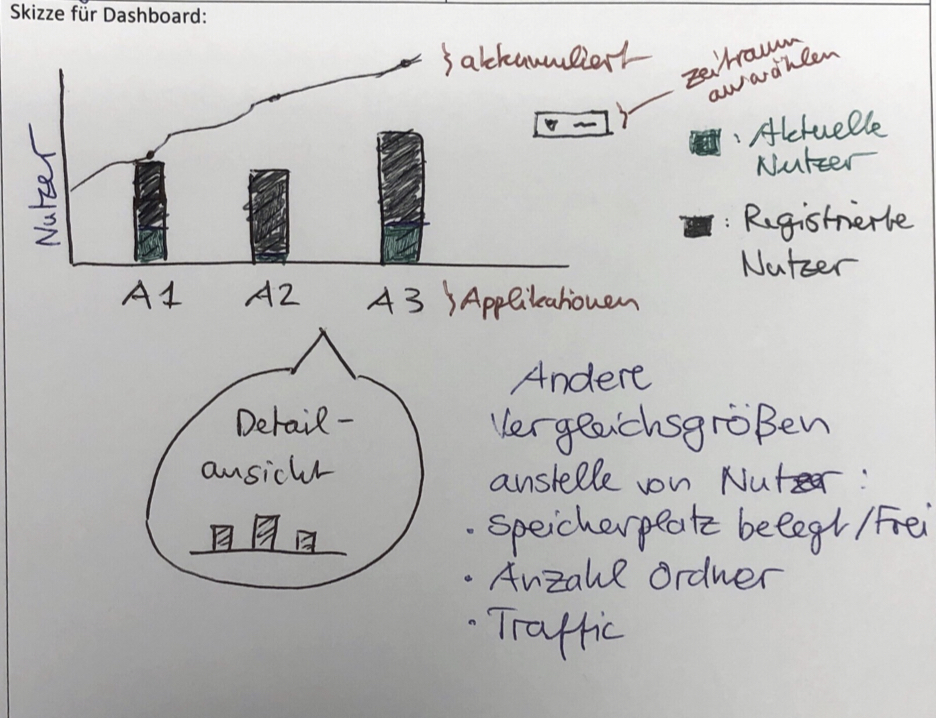 Skizze für Dashboard:
} akkumuliert
zeitraum
auswählen
Nutzer
: Aktuelle
Nutzer
: Registrierte
Nutzer
A1 A2 A3 } Applikationen
Detail-
ansicht
Andere
Vergleichsgrößen
anstelle von Nutzer :
· Speicherplatz belegt/Frei
· Anzahl Ordner
· Traffic